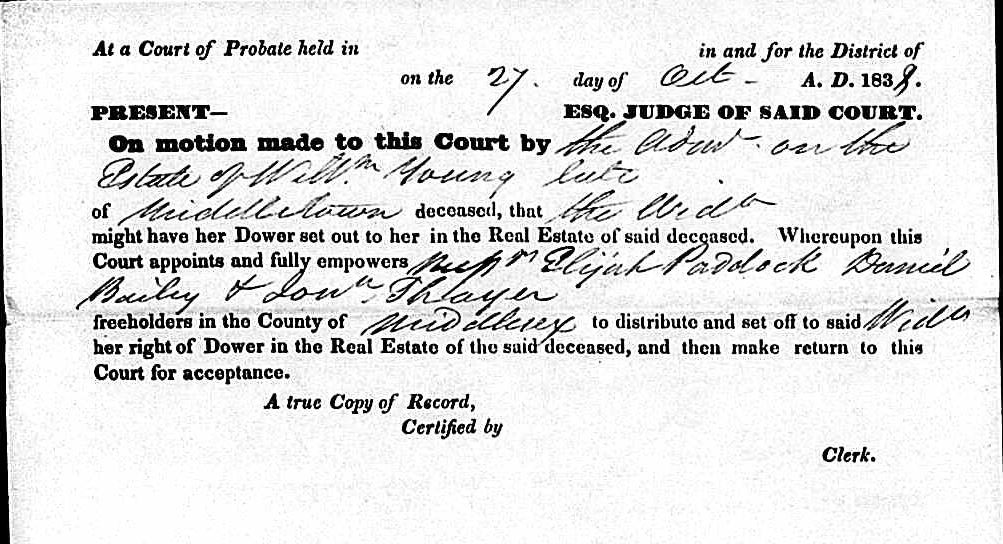 At a Court of Probate held in in and for the District of
on the 27. day of Oct - A. D. 1838.
PRESENT— ESQ. JUDGE OF SAID COURT.
On motion made to this Court by the Admr on the
Estate of Willm Young late
of Middletown deceased, that the Widw
might have her Dower set out to her in the Real Estate of said deceased. Whereupon this
Court appoints and fully empowers Elijah Paddock Daniel
Bailey & Jonn Thayer
freeholders in the County of Middlesex to distribute and set off to said Widw
her right of Dower in the Real Estate of the said deceased, and then make return to this
Court for acceptance.
A true Copy of Record,
Certified by
Clerk.